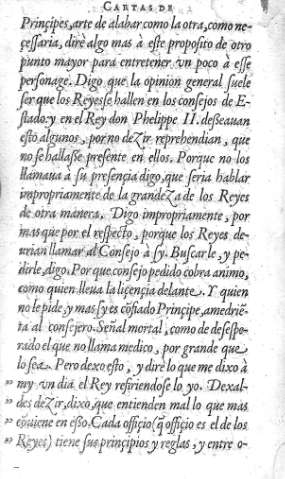 CARTAS DE
Principes, arte de alabar como la otra, como ne-
çessaria, dirè algo mas à este proposito de otro
punto mayor para entretener vn poco à esse
personage. Digo que la opinion general suele
ser que los Reyes se hallen en los consejos de E-
stado: y en el Rey don Phelippe II. desseauan
esto algunos, por no deZir reprehendian, que
no se hallasse presente en ellos. Porque no los
llamaua à su presençia digo, que seria hablar
impropriamente de la grandeZa de los Reyes
de otra manera. Digo impropriamente, por
mas que por el respecto, porque los Reyes de-
urian llamar al Consejo à sy. Buscarle, y pe-
dirle, digo. Porque consejo pedido cobra animo,
como quien lleua la liçençia delante. Y quien
no le pide, y mas sy es cõfiado Prinçipe, amedrẽ-
ta al consejero. Señal mortal, como de desespe-
rado el que no llama medico, por grande que
lo sea. Pero dexo esto, y dirè lo que me dixo à
my vn dia el Rey refiriendose lo yo. Dexal-
» des deZir, dixo, que entienden mal lo que mas
» cõuiene en esso. Cada offiçio (q̃ offiçio es el de los
» Reyes) tiene sus prinçipios y reglas, y entre o-